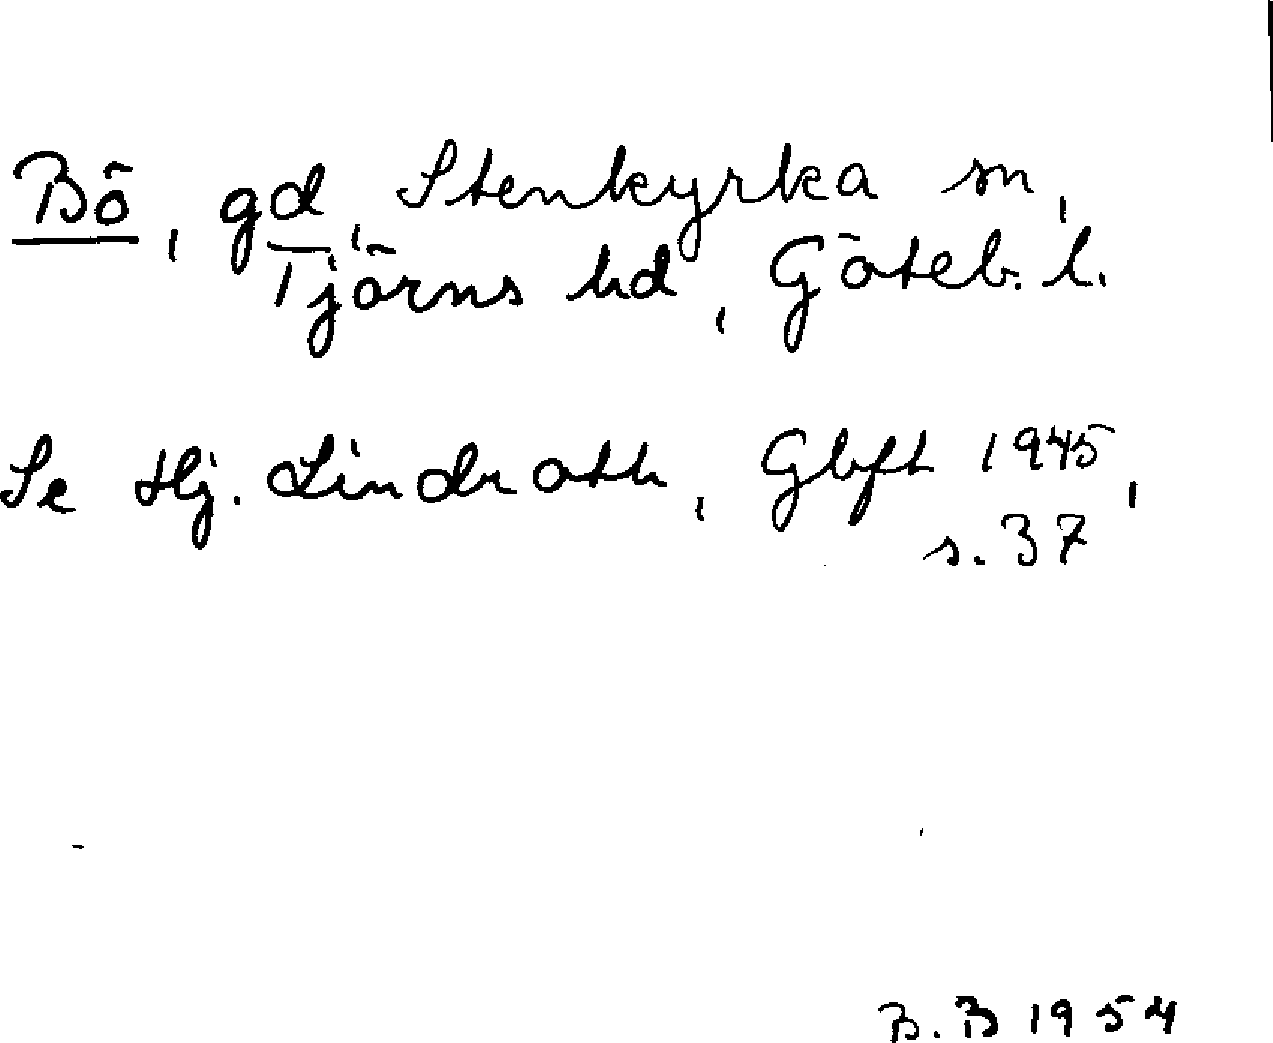 Bö, gd, Stenkyrka sn,
Tjörns hd, Göteb. l.
Se Hj. Lindroth, Gbft 1945,
s. 37
B. B 1954